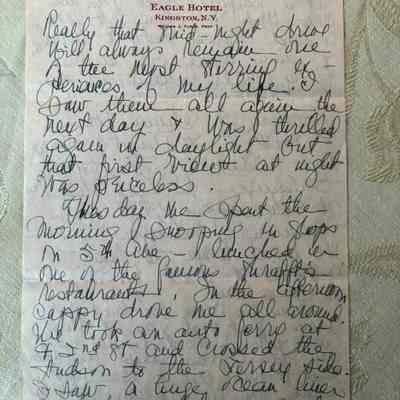 EAGLE HOTEL
KINGSTON, N.Y.
Really that mid-night drive
will always remain one
of the most stirring ex-
periences of my life. I
saw them all again the
next day & was thrilled
again in daylight but
that first view at night
was priceless.
Thursday we spent the
morning snooping in shops
on 5th Ave - lunched in
one of the famous Shraffts
restaurants. In the afternoon
Cappy drove me all around.
We took an auto ferry at
42nd St and crossed the
Hudson to the Jersey side.
I saw a huge ocean liner